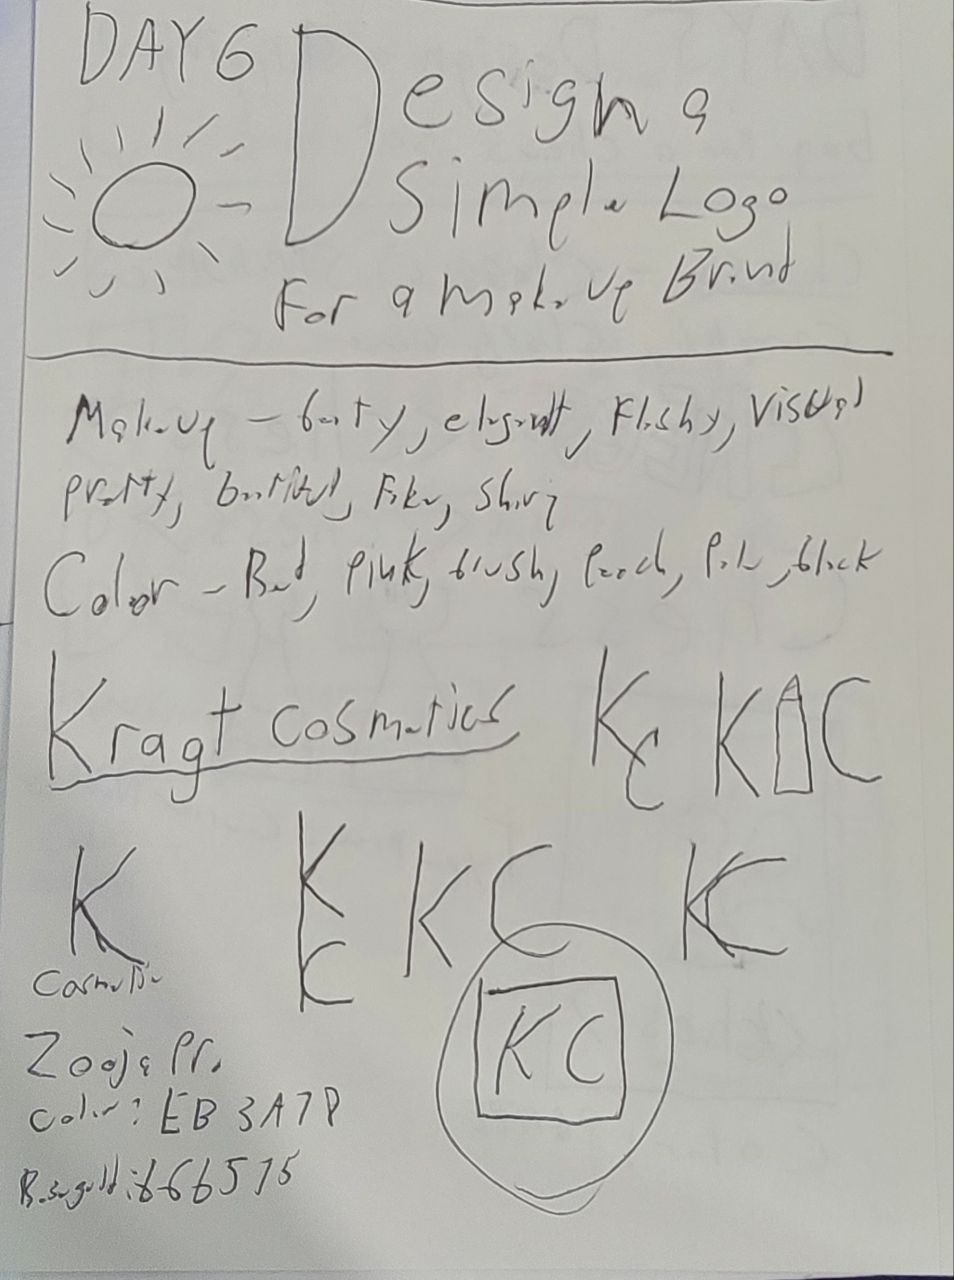 DAY 6
Design a
Simple Logo
For a makeup Brand
Makeup - beauty, elegant, Flashy, Visual
pretty, beautiful, Fake, Shiny
Color - Red, Pink, blush, Peach, Pale, black
Kragt cosmetics
KC
K C
K
Cosmetic
KC
KC
KC
KC
Zooja Pro
Color: EB3A7P
Rosegold: